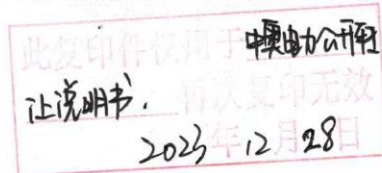 此复印件仅用于中奥电力公开转
让说明书. 再次复印无效
2023年12月28日